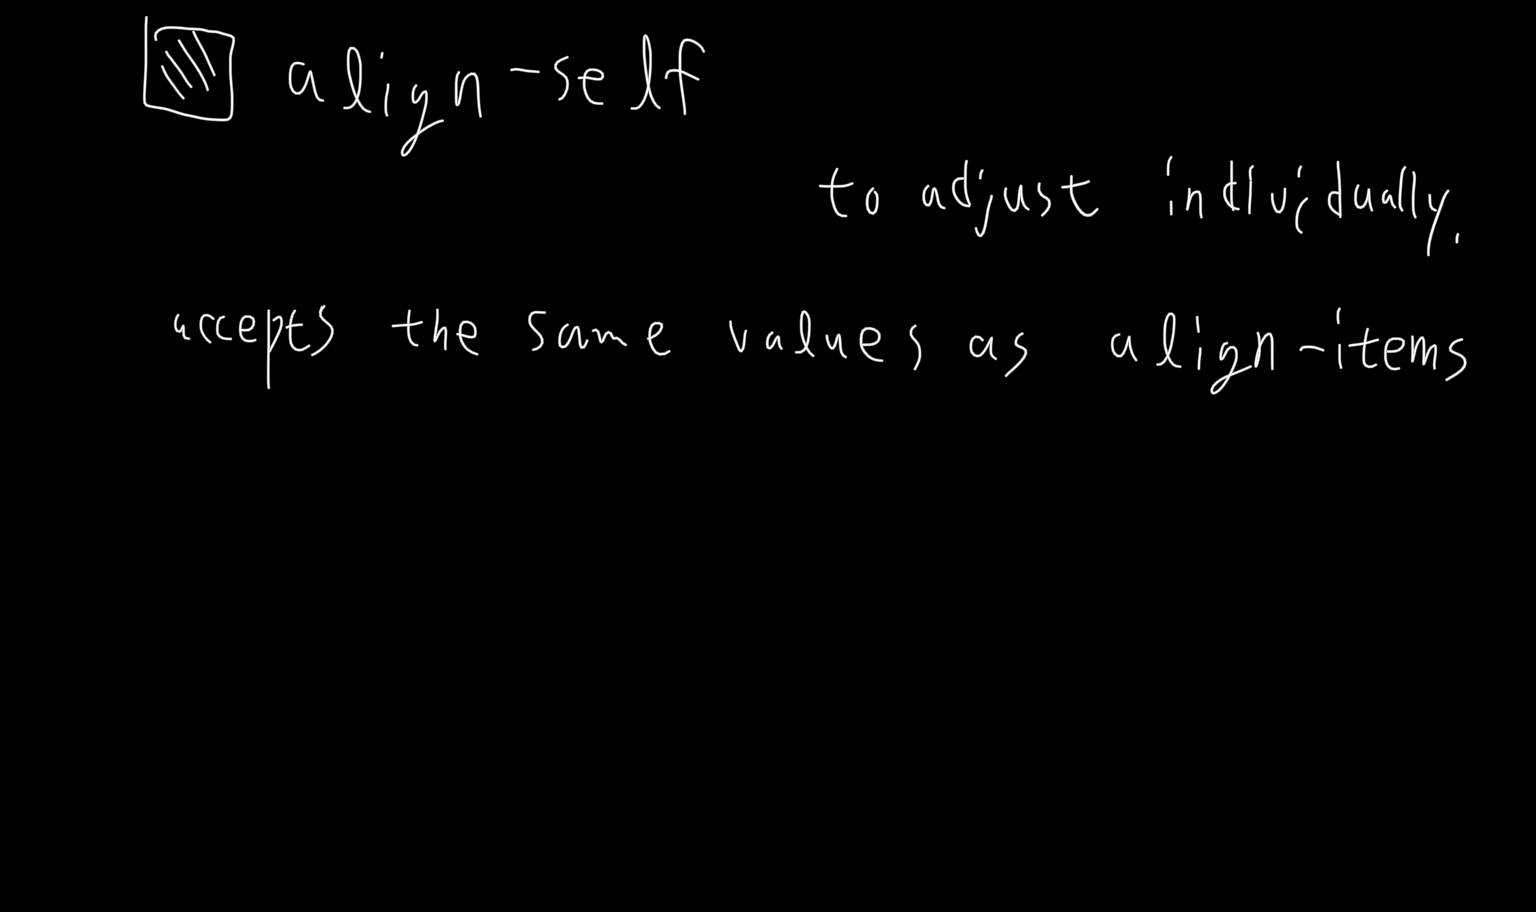 align-self
to adjust individually.
accepts the same values as align-items